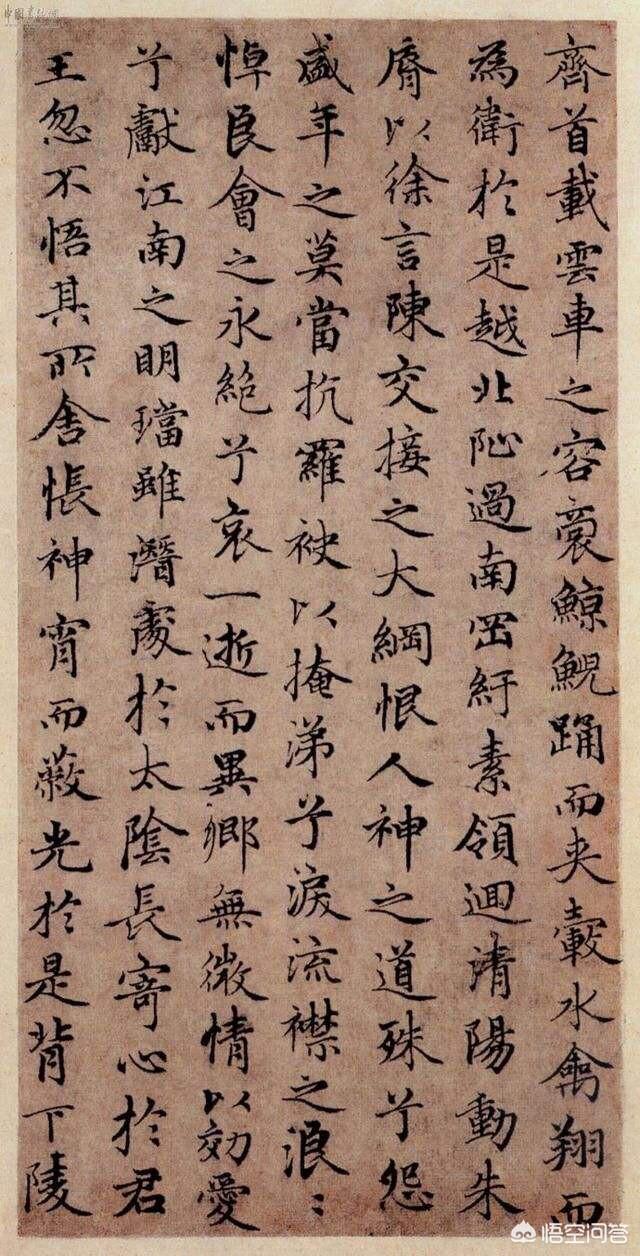 齊首載雲車之容裔鯨鯢踊而夾轂水禽翔而
為衛於是越北阯過南岡紆素領迴清陽動朱
脣以徐言陳交接之大綱恨人神之道殊兮怨
盛年之莫當抗羅袂以掩涕兮淚流襟之浪〻
悼良會之永絕兮哀一逝而異鄉無微情以効愛
兮獻江南之明璫雖潛處於太陰長寄心於君
王忽不悟其所舍悵神宵而蔽光於是背下陵
悟空问答